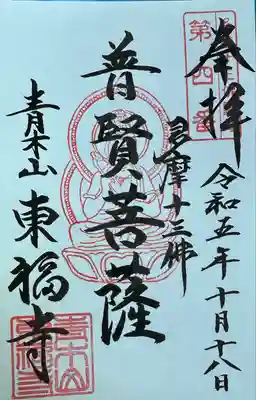 奉拝
第四番
令和五年十月十八日
多摩十三佛
普賢菩薩
青木山
東福寺